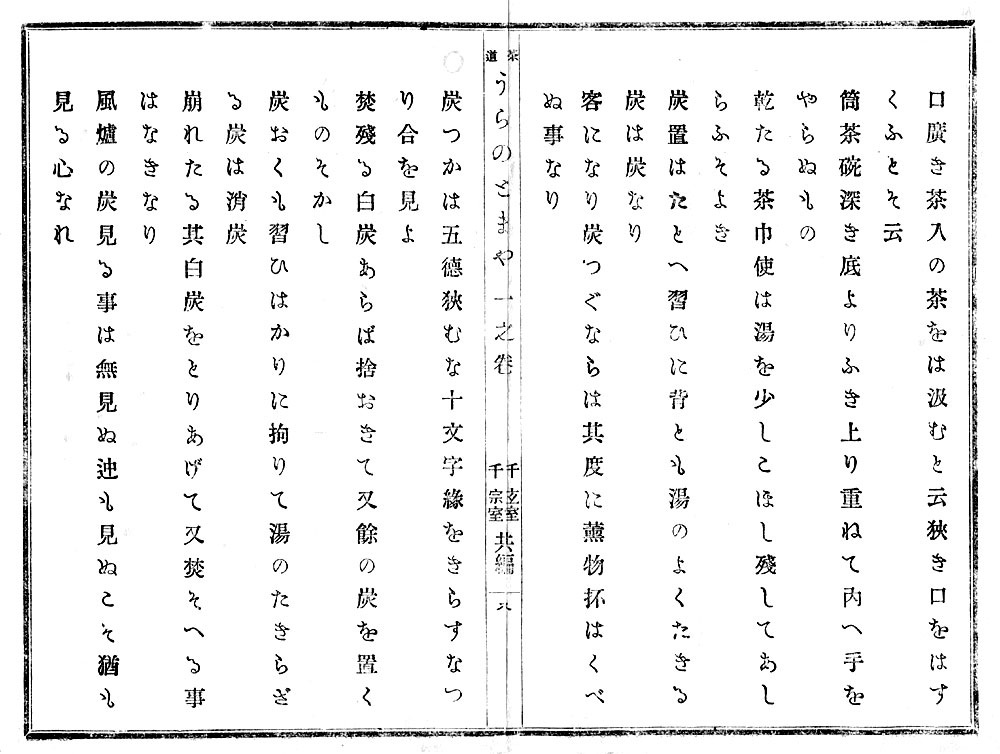 口廣き茶入の茶をは汲むと云狹き口をはす
くふとそ云
筒茶碗深き底よりふき上り重ねて內へ手を
やらぬもの
乾たる茶巾使は湯を少しこほし殘してあし
らふそよき
炭置はたとへ習ひに背とも湯のよくたきる
炭は炭なり
客になり炭つぐならは其度に薰物抔はくべ
ぬ事なり
茶道
うらのとまや一之卷
千玄室
千宗室
共編
八
炭つかは五德狹むな十文字緣をきらすなつ
り合を見よ
焚殘る白炭あらば捨おきて又餘の炭を置く
ものそかし
炭おくも習ひはかりに拘りて湯のたきらざ
る炭は消炭
崩れたる其白炭をとりあげて又焚そへる事
はなきなり
風爐の炭見る事は無見ぬ迚も見ぬこそ猶も
見る心なれ